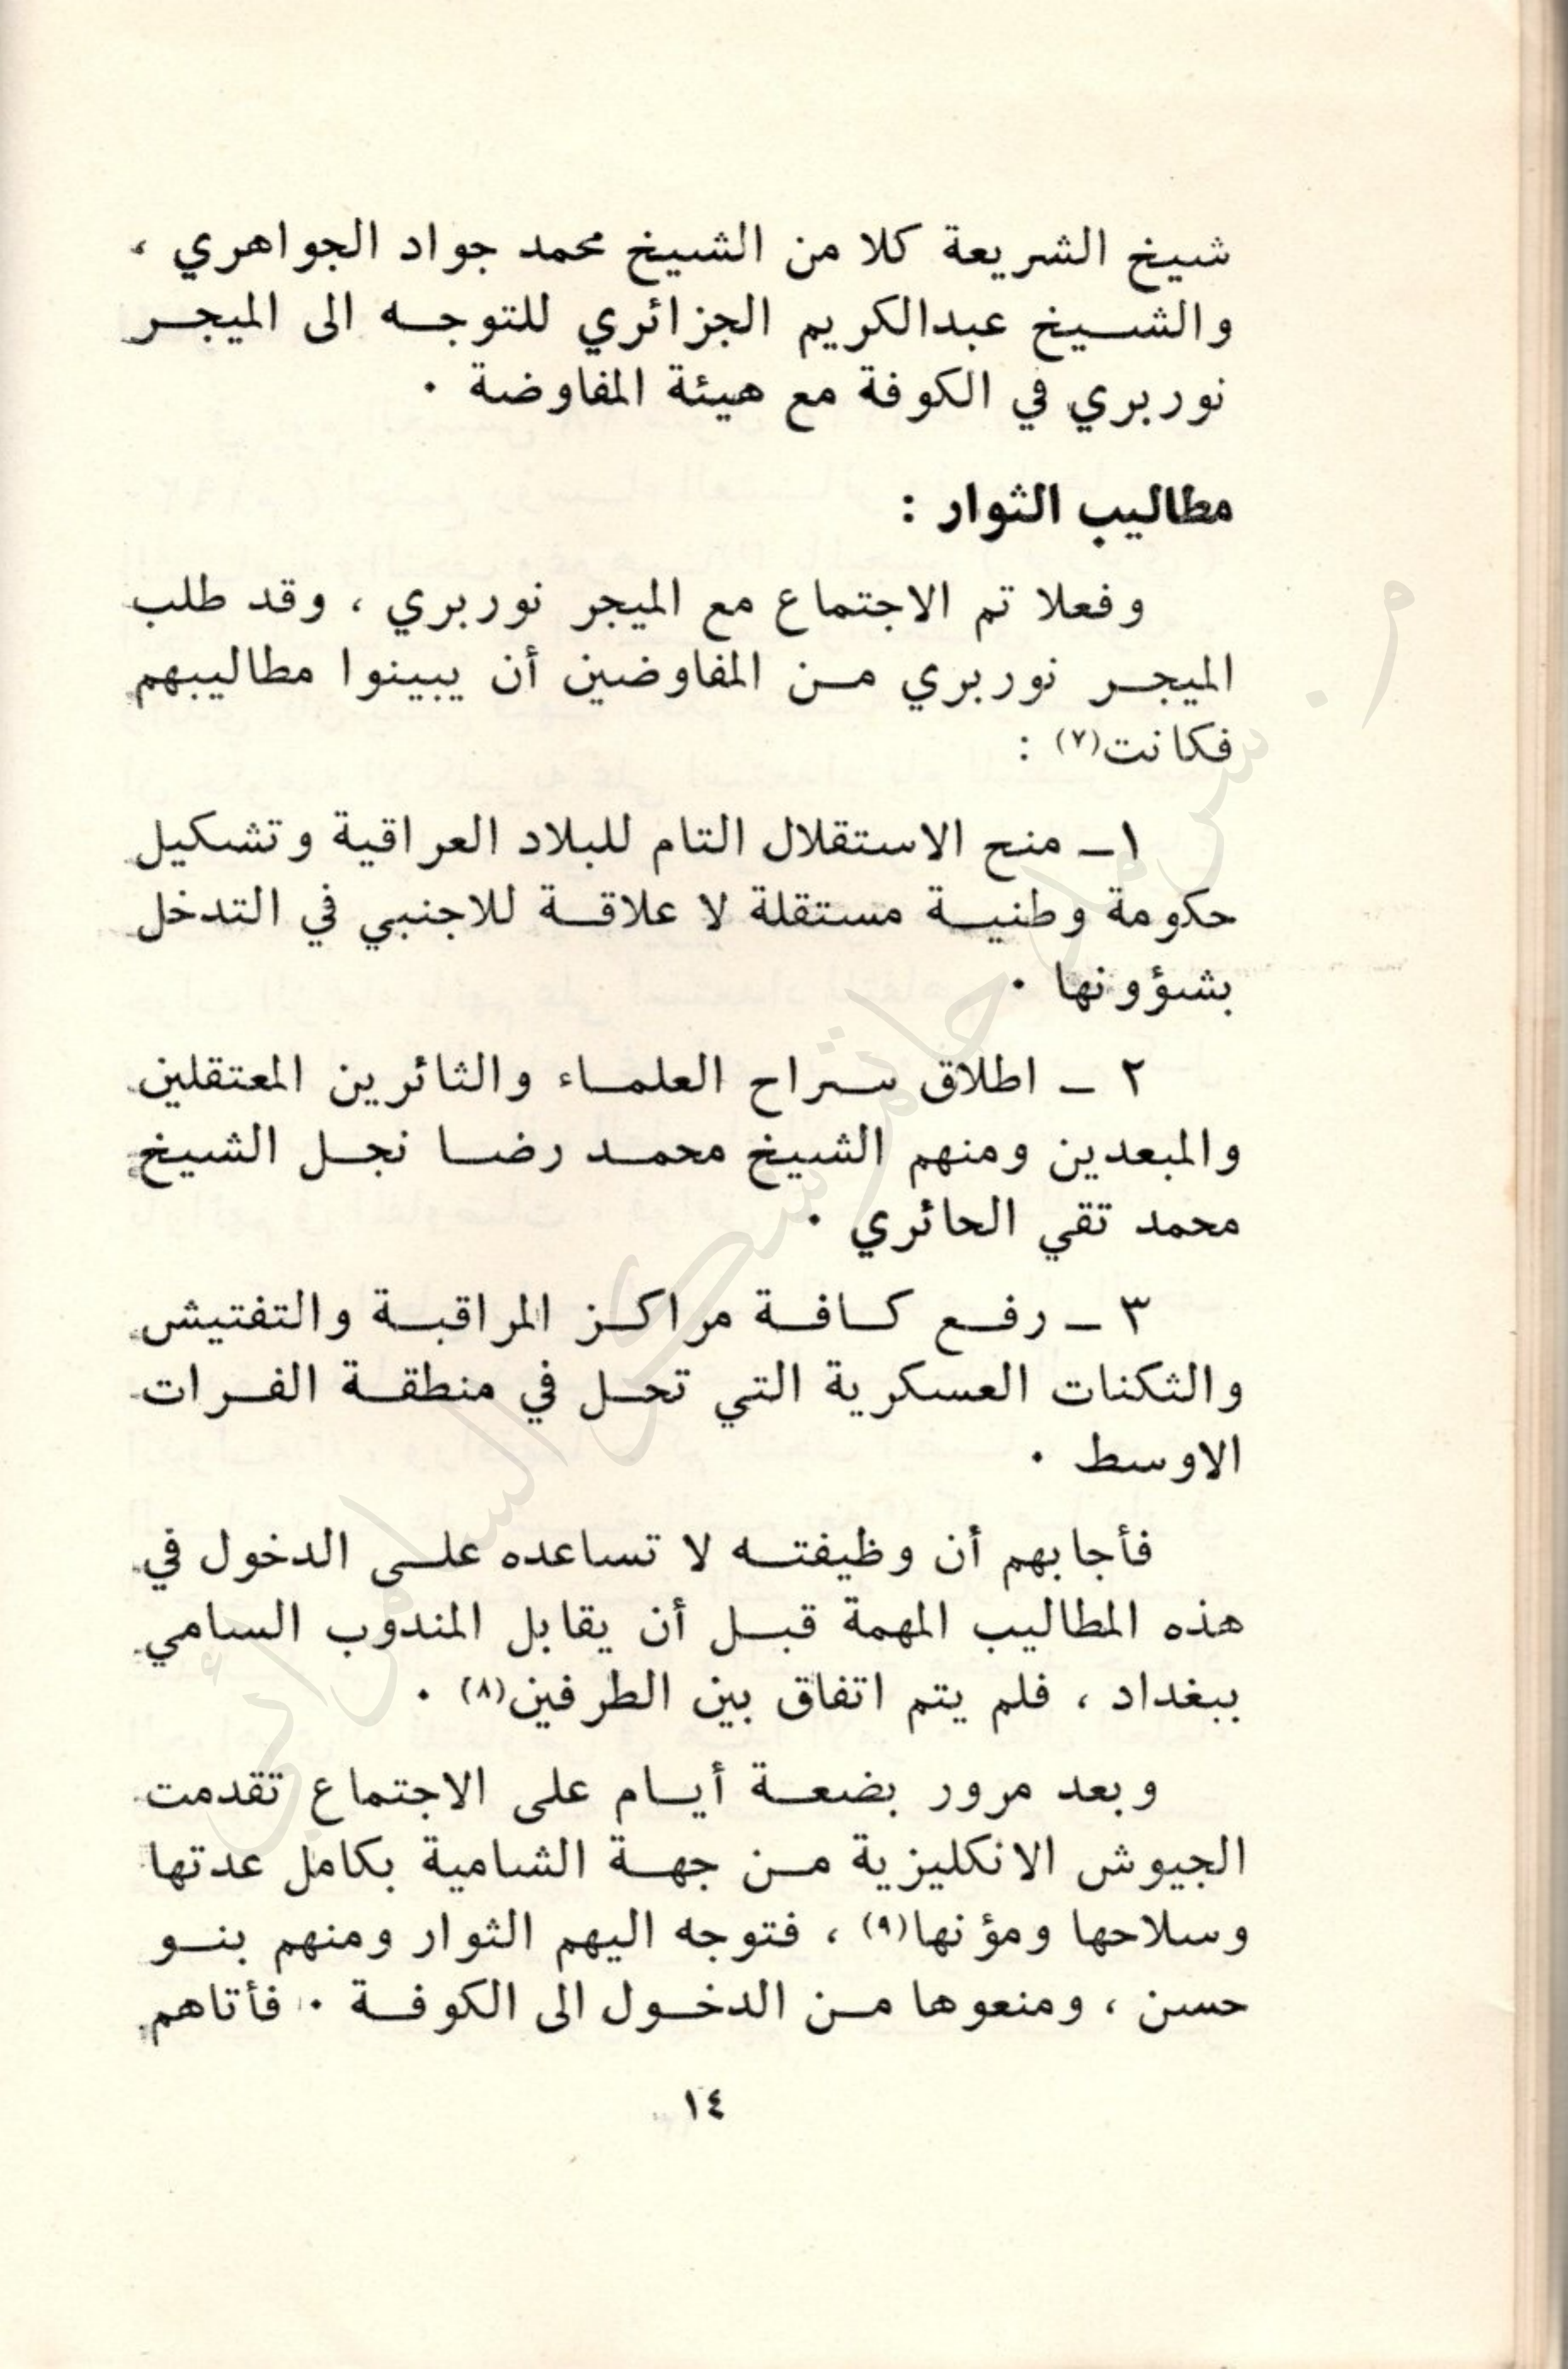 شيخ الشريعة كلا من الشيخ محمد جواد الجواهري ،
والشـــيخ عبدالكريم الجزائري للتوجــه الى الميجــر
نوربري في الكوفة مع هيئة المفاوضة ٠
مطاليب الثوار :
وفعلا تم الاجتماع مع الميجر نوربري ، وقد طلب
الميجــر نوربري مــن المفاوضين أن يبينوا مطاليبهم
فكانت(٧) :
١ــ منح الاستقلال التام للبلاد العراقية وتشكيل
حكومة وطنيــة مستقلة لا علاقــة للاجنبي في التدخل
بشؤونها ٠
٢ ــ اطلاق ســراح العلمــاء والثائرين المعتقلين
والمبعدين ومنهم الشيخ محمــد رضــا نجــل الشيخ
محمد تقي الحائري ٠
٣ ــ رفــع كــافــة مراكــز المراقبــة والتفتيش
والثكنات العسكرية التي تحــل في منطقــة الفــرات
الاوسط ٠
فأجابهم أن وظيفتــه لا تساعده علــى الدخول في
هذه المطاليب المهمة قبــل أن يقابل المندوب السامي
ببغداد ، فلم يتم اتفاق بين الطرفين(٨) ٠
وبعد مرور بضعــة أيــام على الاجتماع تقدمت
الجيوش الانكليزية مــن جهــة الشامية بكامل عدتها
وسلاحها ومؤنها(٩) ، فتوجه اليهم الثوار ومنهم بنــو
حسن ، ومنعوها مــن الدخــول الى الكوفــة ٠ فأتاهم
١٤